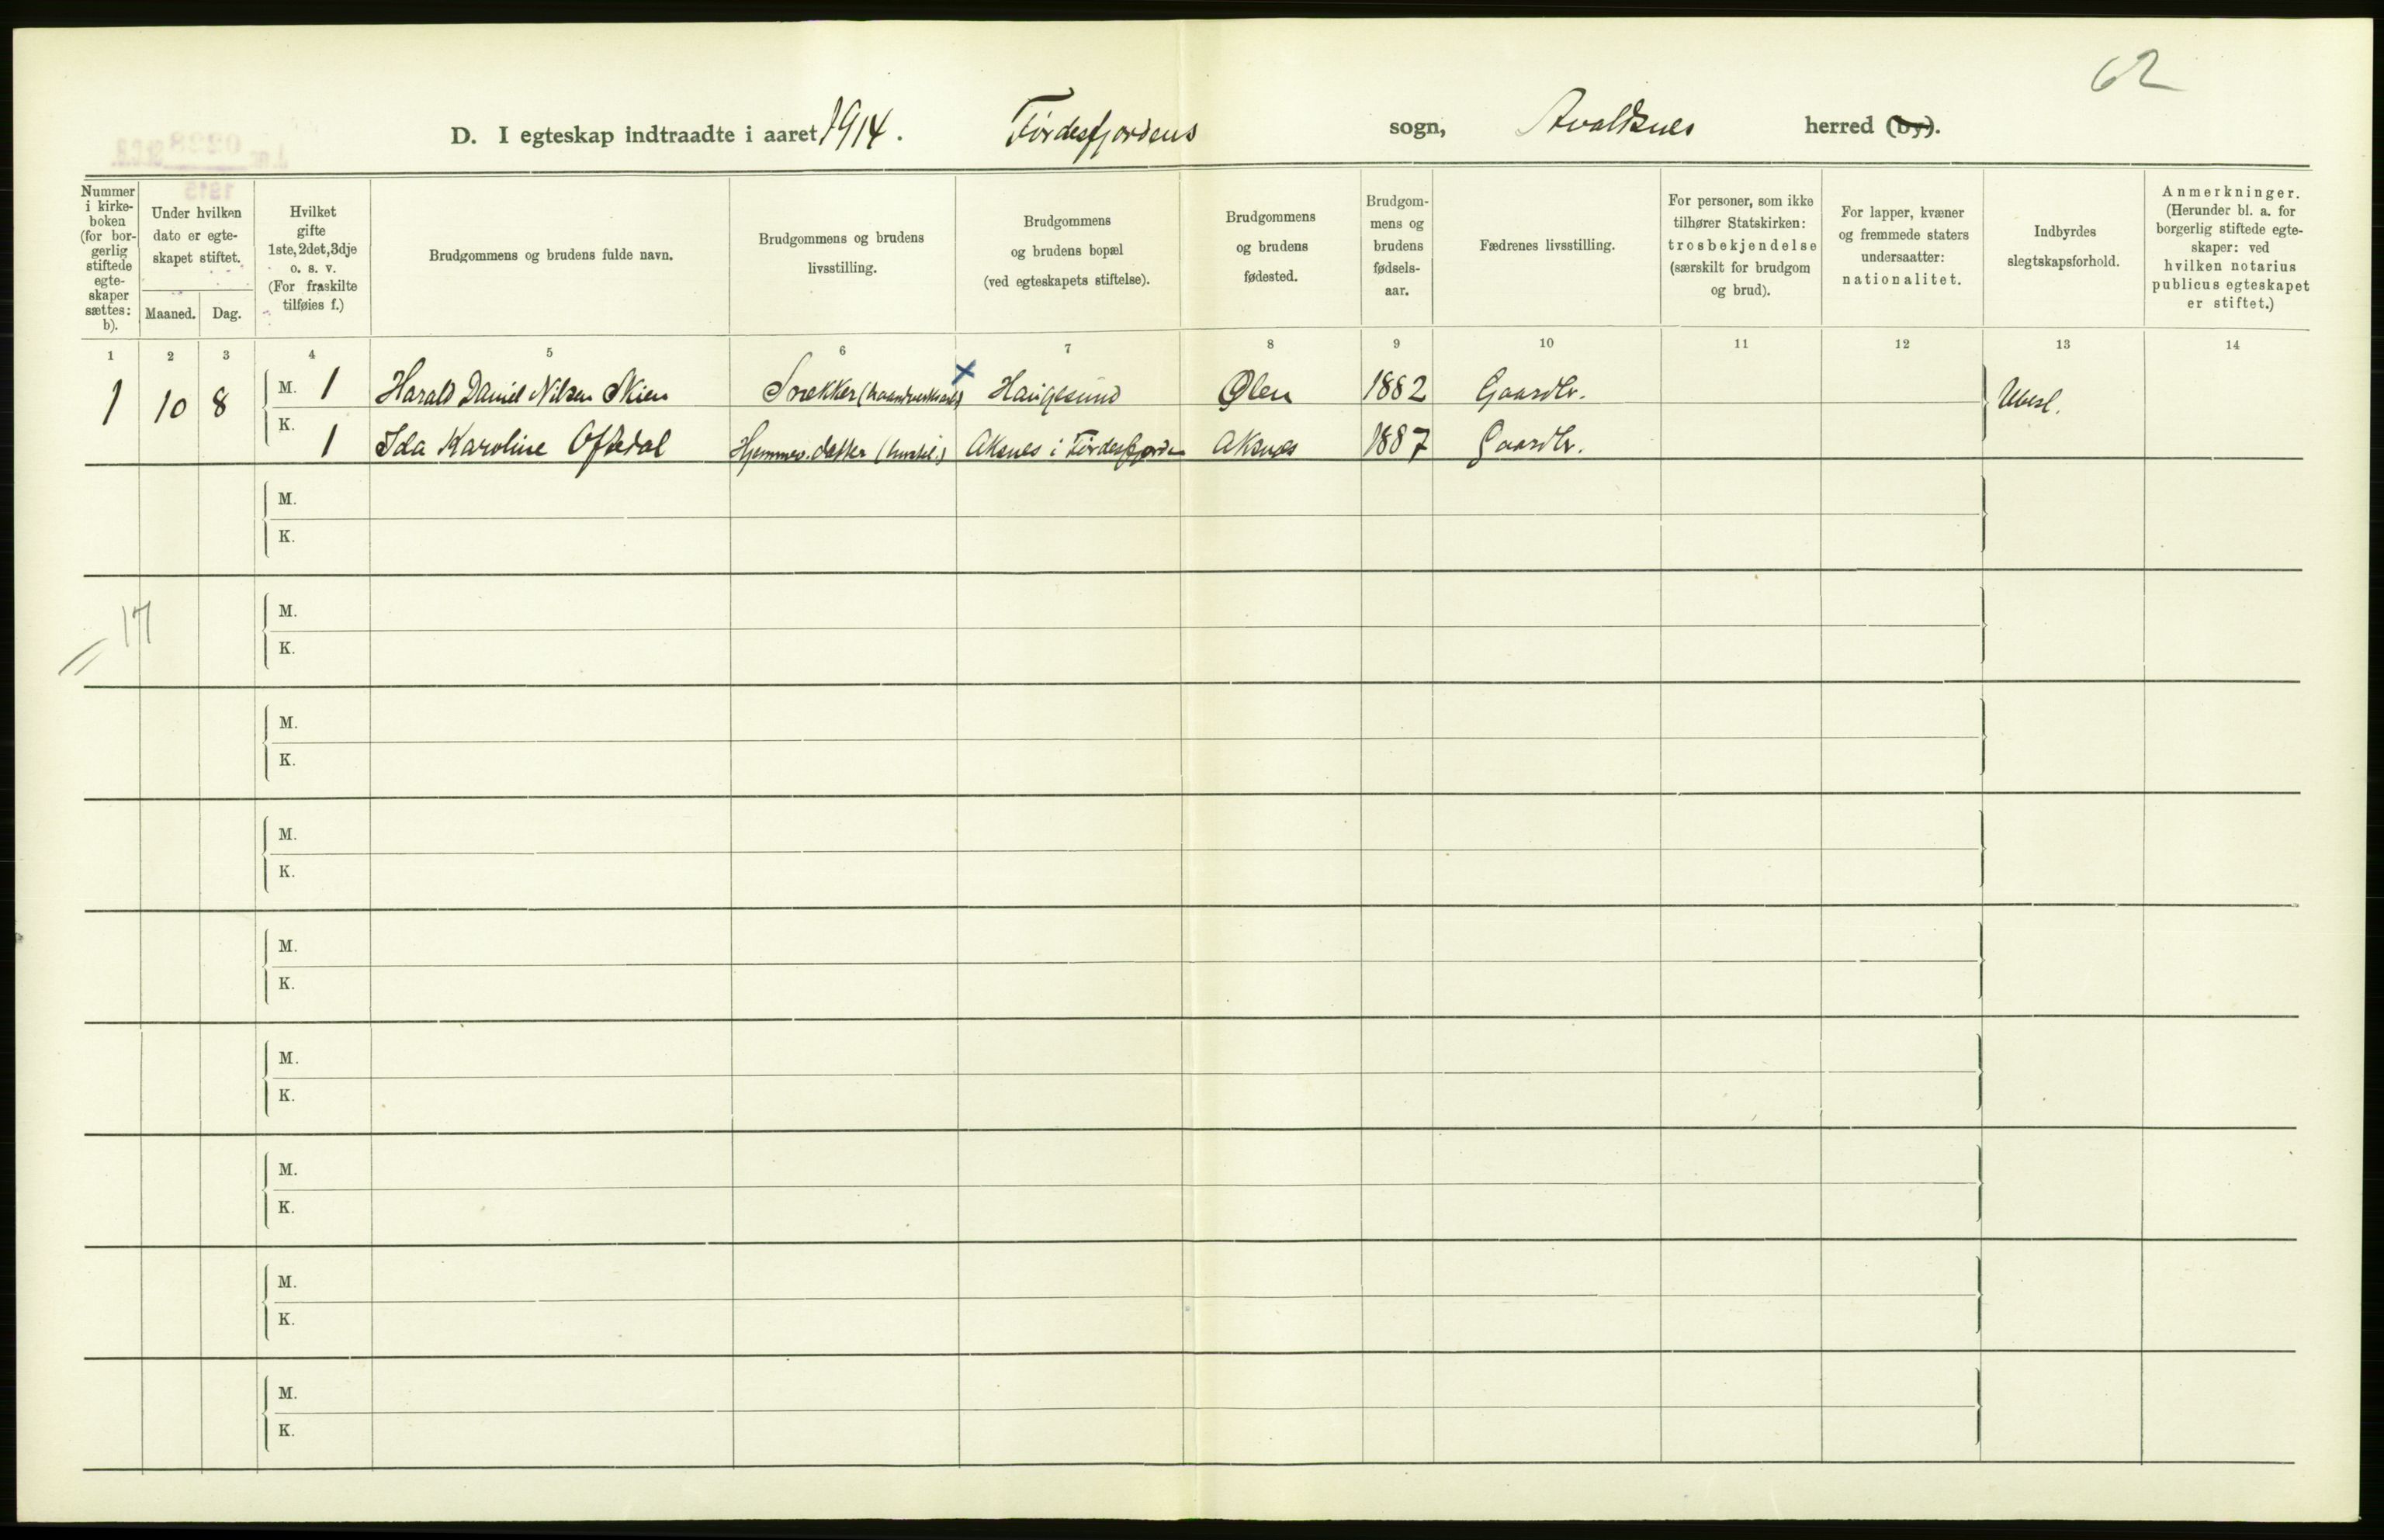 62
D. I egteskap indtraadte i aaret 1914. Førdesfjordens sogn, Avaldsnes herred (by).
Nummer i kirkeboken (for borgerlig stiftede egteskaper sættes: b).
Under hvilken dato er egteskapet stiftet.
Maaned. Dag.
Hvilket gifte 1ste, 2det, 3dje o. s. v. (For fraskilte tilføies f.)
Brudgommens og brudens fulde navn.
Brudgommens og brudens livsstilling.
Brudgommens og brudens bopæl (ved egteskapets stiftelse).
Brudgommens og brudens fødested.
Brudgommens og brudens fødselsaar.
Fædrenes livsstilling.
For personer, som ikke tilhører Statskirken: trosbekjendelse (særskilt for brudgom og brud).
For lapper, kvæner og fremmede staters undersaatter: nationalitet.
Indbyrdes slegtskapsforhold.
Anmerkninger. (Herunder bl. a. for borgerlig stiftede egteskaper: ved hvilken notarius publicus egteskapet er stiftet.)
1 2 3 4 5 6 7 8 9 10 11 12 13 14
1 10 8 M. 1 Harald Daniel Nilsen Skien Snekker Haugesund Ølen 1882 Gaardbr. Ubesl.
K. 1 Ida Karoline Oftedal Hjemmev. datter Aksnes i Førdesfjorden Aksnes 1887 Gaardbr.
M.
K.
17
M.
K.
M.
K.
M.
K.
M.
K.
M.
K.
M.
K.
M.
K.
M.
K.